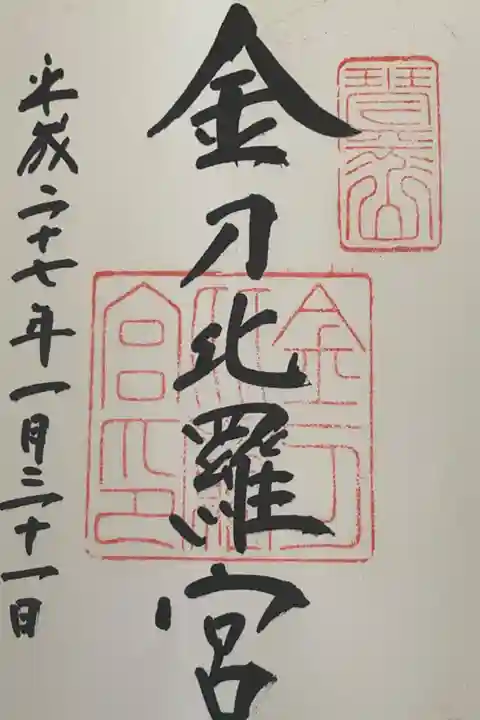 琴平山
金刀比羅宮
金刀比羅宮印
平成二十七年一月三十一日